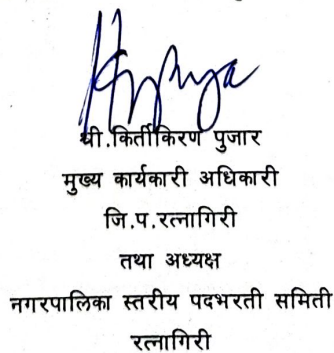 श्री.किर्तीकिरण पुजार
मुख्य कार्यकारी अधिकारी
जि.प.रत्नागिरी
तथा अध्यक्ष
नगरपालिका स्तरीय पदभरती समिती
रत्नागिरी